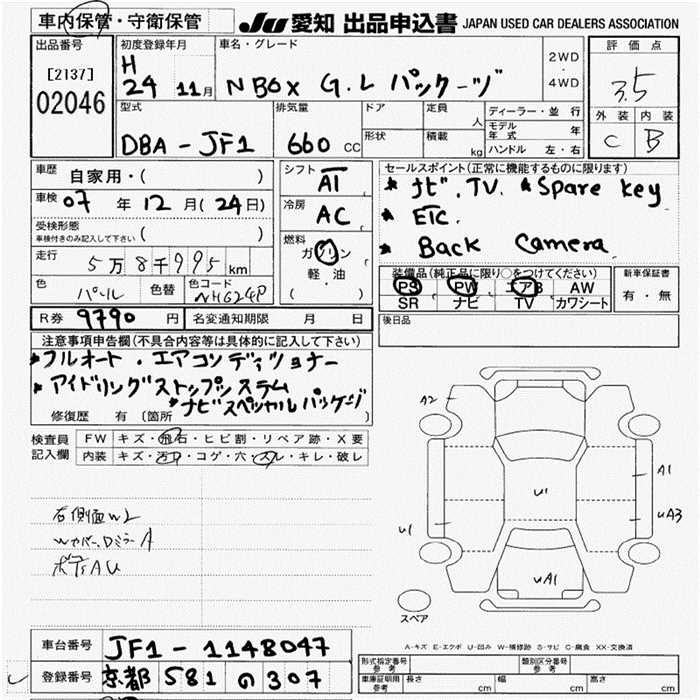 車内保管・守衛保管 JU 愛知 出品申込書 JAPAN USED CAR DEALERS ASSOCIATION
出品番号 初度登録年月 車名・グレード 評価点
[2137] H 2WD
02046 24 11月 N BOX G.L パッケージ ・ 4WD 3.5
型式 排気量 ドア 定員 人 ディーラー・並行 外装 内装
モデル年式 年
DBA-JF1 660 CC 形状 積載 kg ハンドル 左・右 C B
車歴 自家用・( ) シフト AT セールスポイント(正常に機能するものに限ります)
車検 07年12月(24日) 冷房 AC * ナビ.TV. * Spare key
受検形態 ( ) * ETC.
車検付きのみ記入して下さい 燃料 ガソリン * Back Camera
走行 5万8千995km 軽・油 装備品(純正品に限り○をつけてください) 新車保証書
色 パール 色替 色コード NH624P ( ) PS PW エアB AW 有・無
SR ナビ TV カワシート
R券 9790円 名変通知期限 月 日 後日品
注意事項申告欄(不具合内容等は具体的に記入して下さい)
*フルオート・エアコンディショナー
*アイドリングストップシステム
*ナビスペシャルパッケージ
修復歴 有(箇所 )
検査員 FW キズ・飛石・ヒビ割・リペア跡・X要
記入欄 内装 キズ・汚れ・コゲ・穴・スレ・キレ・破レ
A2
A1
U1
右側面W2 UA3
U1
Wカバー、Dミラー A
ボディAU UA1
スペア
A-キズ E-エクボ U-凹み W-補修跡 S-サビ C-腐食 XX-交換済
車台番号 JF1-1148047 形式指定番号 参考 類別区分番号 参考
登録番号 京都 581 の 307 車庫証明用 参考 長さ cm 幅 cm 高さ cm